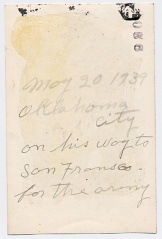 May 20 1939
Oklahoma
city
on his way to
San Fransco
for the army